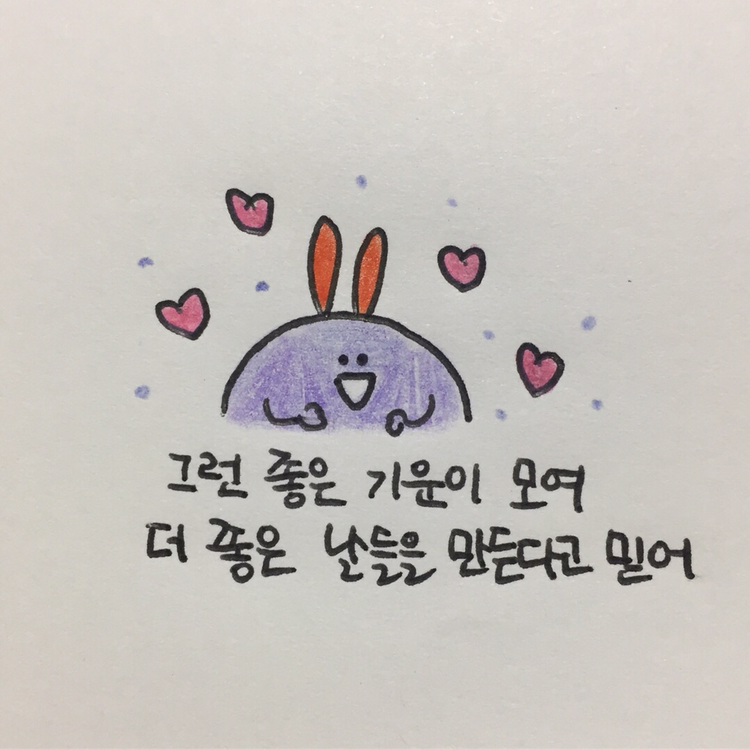 그런 좋은 기운이 모여
더 좋은 날들을 만든다고 믿어